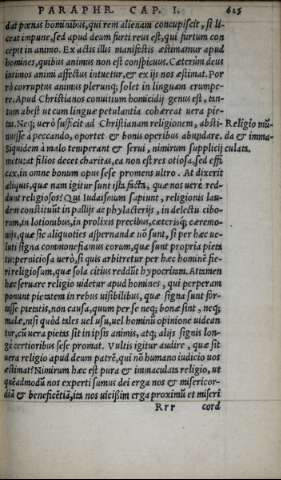 PARAPHR. CAP. I. 625
dat pœnas hominibus, qui rem alienam concupiscit, si li-
ceat impune, sed apud deum furti reus est, qui furtum con
cepit in animo. Ex actis illis manifestis æstimamur apud
homines, quibus animus non est conspicuus. Cæterùm deus
intimos animi affectus intuetur, & ex ijs nos æstimat. Por
rò corruptus animus plerunq; solet in linguam erumpe-
re. Apud Christianos conuitium homicidij genus est, tan-
tum abest ut cum linguæ petulantia cohæreat uera pie-
tas. Neq; uerò sufficit ad Christianam religionem, absti-
nuisse à peccando, oportet & bonis operibus abundare.
Religio mũ-
da & imma-
culata.
Siquidem à malo temperant & serui, nimirum supplicij
metu: at filios decet charitas, ea non est res otiosa, sed effi
cax, in omne bonum opus sese promens ultro. At dixerit
aliquis, quæ nam igitur sunt ista factu, quæ nos uerè red-
dunt religiosos? Qui Iudaismum sapiunt, religionis lau-
dem constituūt in pallijs ac phylacterijs, in delectu cibo-
rum, in lotionibus, in prolixis precibus, cæterisq; ceremo-
nijs, quæ sic aliquoties aspernandæ nõ sunt, si per hæc ue-
luti signa commonefiamus eorum, quæ sunt propria pieta
tis: perniciosa uerò, si quis arbitretur per hæc hominē fie-
ri religiosum, quæ sola citius reddūt hypocritam. Attamen
hæc seruare religio uidetur apud homines, qui perperam
ponunt pietatem in rebus uisibilibus, quæ signa sunt for-
nisse pietatis, non causa, quum per se neq; bonæ sint, neq;
malæ, nisi quòd tales uel usu, uel hominũ opinione uidean
tur, cũ uera pietas sit in ipsis animis, atq; alijs signis lon-
gè certioribus sese promat. Vultis igitur audire, quæ sit
uera religio apud deum patrē, qui nõ humano iudicio nos
æstimat? Nimirum hæc est pura & immaculata religio, ut
quēadmodũ nos experti sumus dei erga nos & misericor-
diā & beneficētiā, ita nos uicissim erga proximũ et miseri
Rrr cord